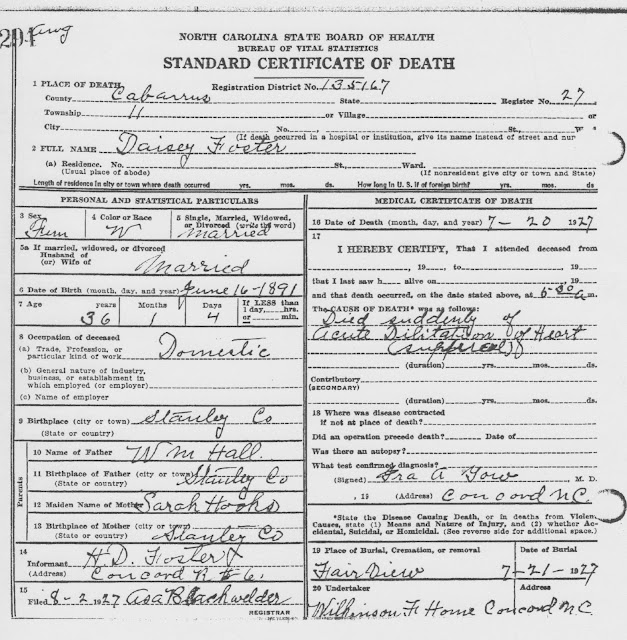 291
NORTH CAROLINA STATE BOARD OF HEALTH
BUREAU OF VITAL STATISTICS
STANDARD CERTIFICATE OF DEATH
1 PLACE OF DEATH
Registration District No. 135167
County Cabarrus State Register No. 27
Township 11 or Village or
City No. St., W s
(If death occurred in a hospital or institution, give its name instead of street and nur
2 FULL NAME Daisey Foster
(a) Residence. No. St., Ward.
(Usual place of abode) (If nonresident give city or town and State)
Length of residence in city or town where death occurred yrs. mos. ds. How long in U. S. if of foreign birth? yrs. mos. ds.
PERSONAL AND STATISTICAL PARTICULARS
3 Sex Fem
4 Color or Race W
5 Single, Married, Widowed, or Divorced (write the word) Married
5a If married, widowed, or divorced
Husband of
(or) Wife of Married
6 Date of Birth (month, day, and year) June 16-1891
7 Age years Months Days If LESS than
1 day, hrs.
or min.
36 1 4
8 Occupation of deceased
(a) Trade, Profession, or particular kind of work Domestic
(b) General nature of industry,
business, or establishment in
which employed (or employer)
(c) Name of employer
9 Birthplace (city or town) Stanley Co
(State or country)
Parents
10 Name of Father Wm Hall
11 Birthplace of Father (city or town) Stanley Co
(State or country)
12 Maiden Name of Mother Sarah Hooks
13 Birthplace of Mother (city or town) Stanley Co
(State or country)
14
Informant H D. Foster
(Address) Concord R #6
15
Filed 8-2 1927 Asa Blackwelder
REGISTRAR
MEDICAL CERTIFICATE OF DEATH
16 Date of Death (month, day, and year) 7-20 1927
17
I HEREBY CERTIFY, That I attended deceased from
, 19 , to , 19
that I last saw h alive on , 19
and that death occurred, on the date stated above, at m.
The CAUSE OF DEATH* was as follows:
Died suddenly of
Acute Dilitation of Heart
(duration) yrs. mos. ds.
Contributory
(SECONDARY)
(duration) yrs. mos. ds.
18 Where was disease contracted
if not at place of death?
Did an operation precede death? Date of
Was there an autopsy?
What test confirmed diagnosis?
(Signed) Ira A Yow M. D.
, 19 (Address) Concord NC.
*State the Disease Causing Death, or in deaths from Violen
Causes, state (1) Means and Nature of Injury, and (2) whether Ac-
cidental, Suicidal, or Homicidal. (See reverse side for additional space.)
19 Place of Burial, Cremation, or removal Date of Burial
Fair View 7-21-1927
20 Undertaker Address
Wilkinson F Home Concord N.C.